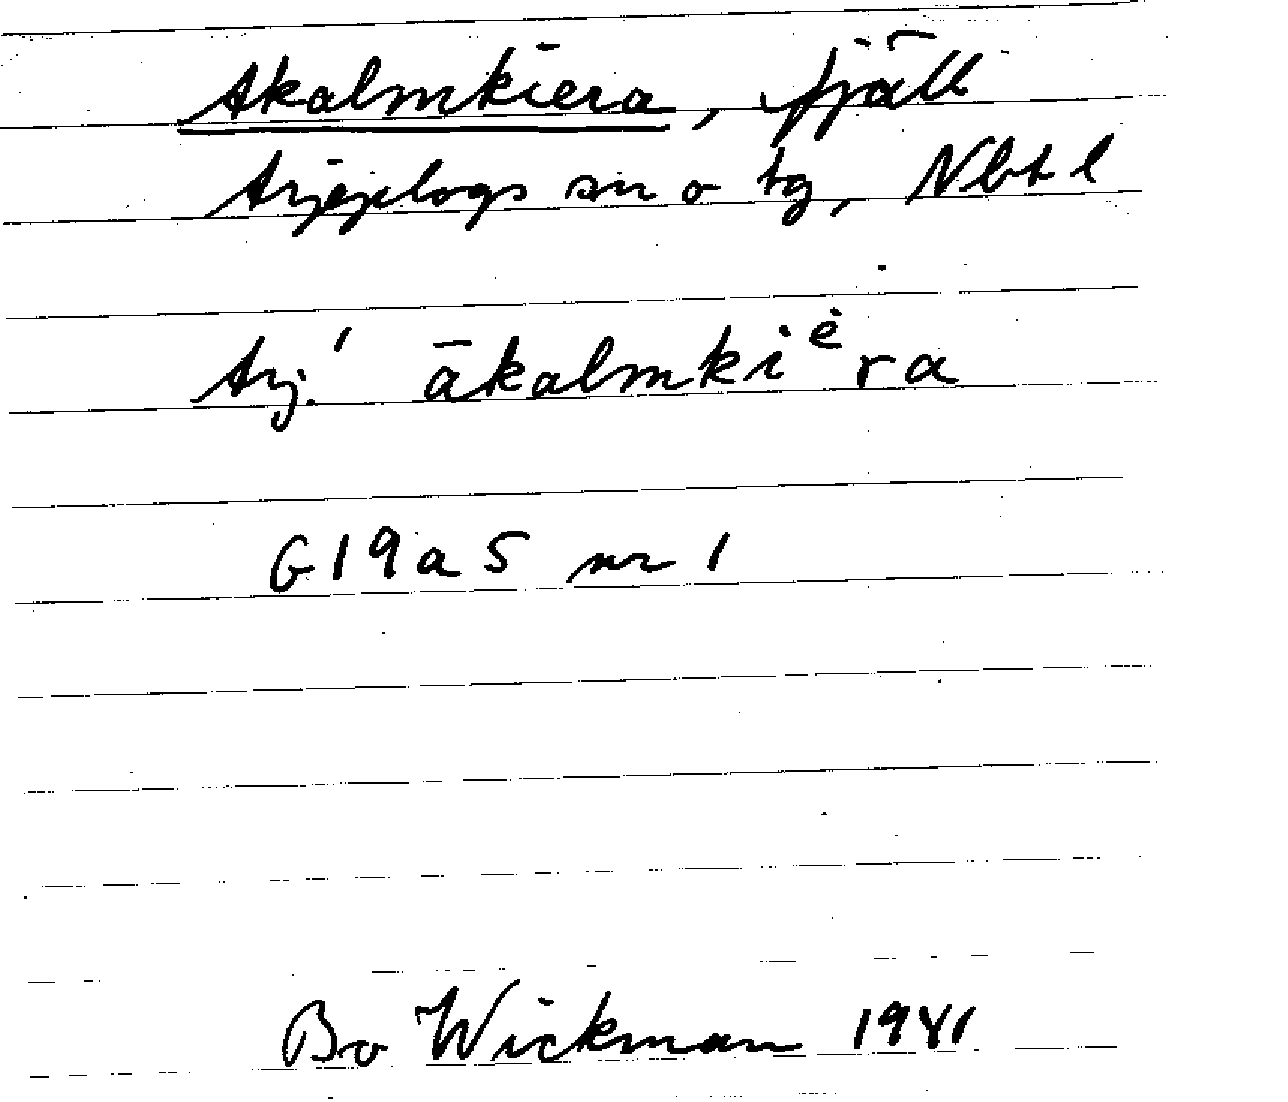 Akalmkiera, fjäll
Arjeplogs sn o tg, Nbt l
Arj.' ākalmkiėra
G19a5 nr 1
Bo Wickman 1941